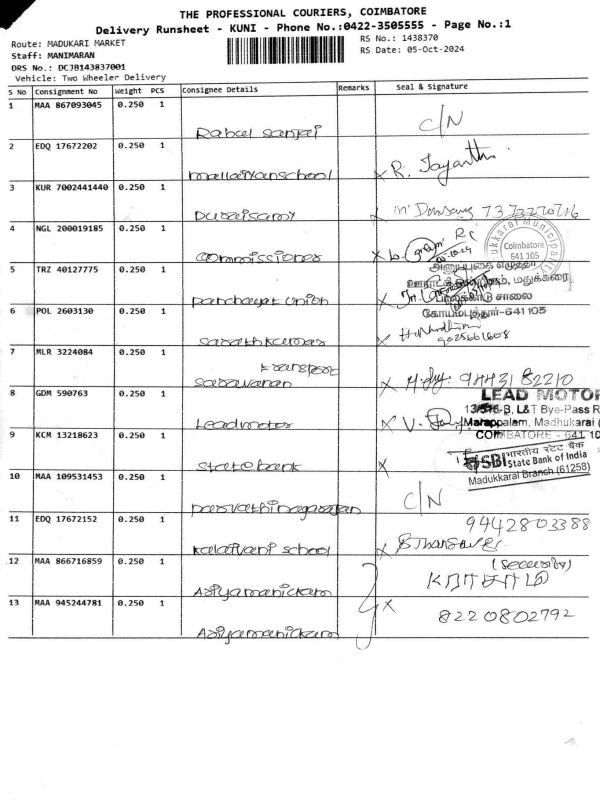 THE PROFESSIONAL COURIERS, COIMBATORE
Delivery Runsheet - KUNI - Phone No.:0422-3505555 - Page No.:1
Route: MADUKARI MARKET
RS No.: 1438370
Staff: MANIMARAN
RS Date: 05-Oct-2024
DRS No.: DCJB143837001
Vehicle: Two Wheeler Delivery
S No Consignment No Weight PCS Consignee Details Remarks Seal & Signature
1 MAA 867093045 0.250 1
Rahul sanjai C/N
2 EDQ 17672202 0.250 1
mallaiyanschool R. Jayanthi
3 KUR 7002441440 0.250 1
Duraisamy 7373270716
4 NGL 200019185 0.250 1
commissioner
ukkarai Municipality
Coimbatore
641 105
5 TRZ 40127775 0.250 1
அலுவலக எழுத்தர்
ஊராட்சி ஒன்றியம், மதுக்கரை
பாலக்காடு சாலை
கோயம்புத்தூர்-641105
panchayat union
6 POL 2603130 0.250 1
sarathkumar 9025661608
7 MLR 3224084 0.250 1
transport
saravanan 9443182210
8 GDM 590763 0.250 1
LEAD MOTO
L&T Bye-Pass R
Marappalam, Madhukarai
COIMBATORE - 641 10
Leadmotor
9 KCM 13218623 0.250 1
भारतीय स्टेट बैंक
SBI State Bank of India
Madukkarai Branch (61258)
state bank
10 MAA 109531453 0.250 1
parvathinagarajan C/N
11 EDQ 17672152 0.250 1
9442803388
kalaivani school
12 MAA 866716859 0.250 1
(Security)
Adiyamanickam
13 MAA 945244781 0.250 1
8220802792
Adiyamanickam